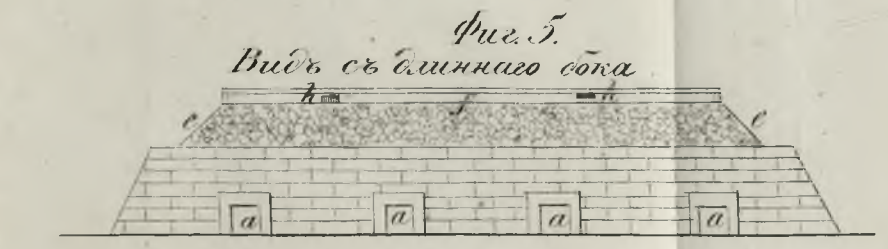 Фиг. 5.
Видъ съ длиннаго бока
h h
e f e
a a a a